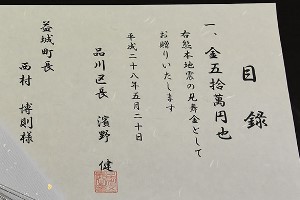 目録
一、金五拾萬円也
右熊本地震の見舞金として
お贈りいたします
平成二十八年五月二十日
品川区長 濱野 健
益城町長
西村 博則様